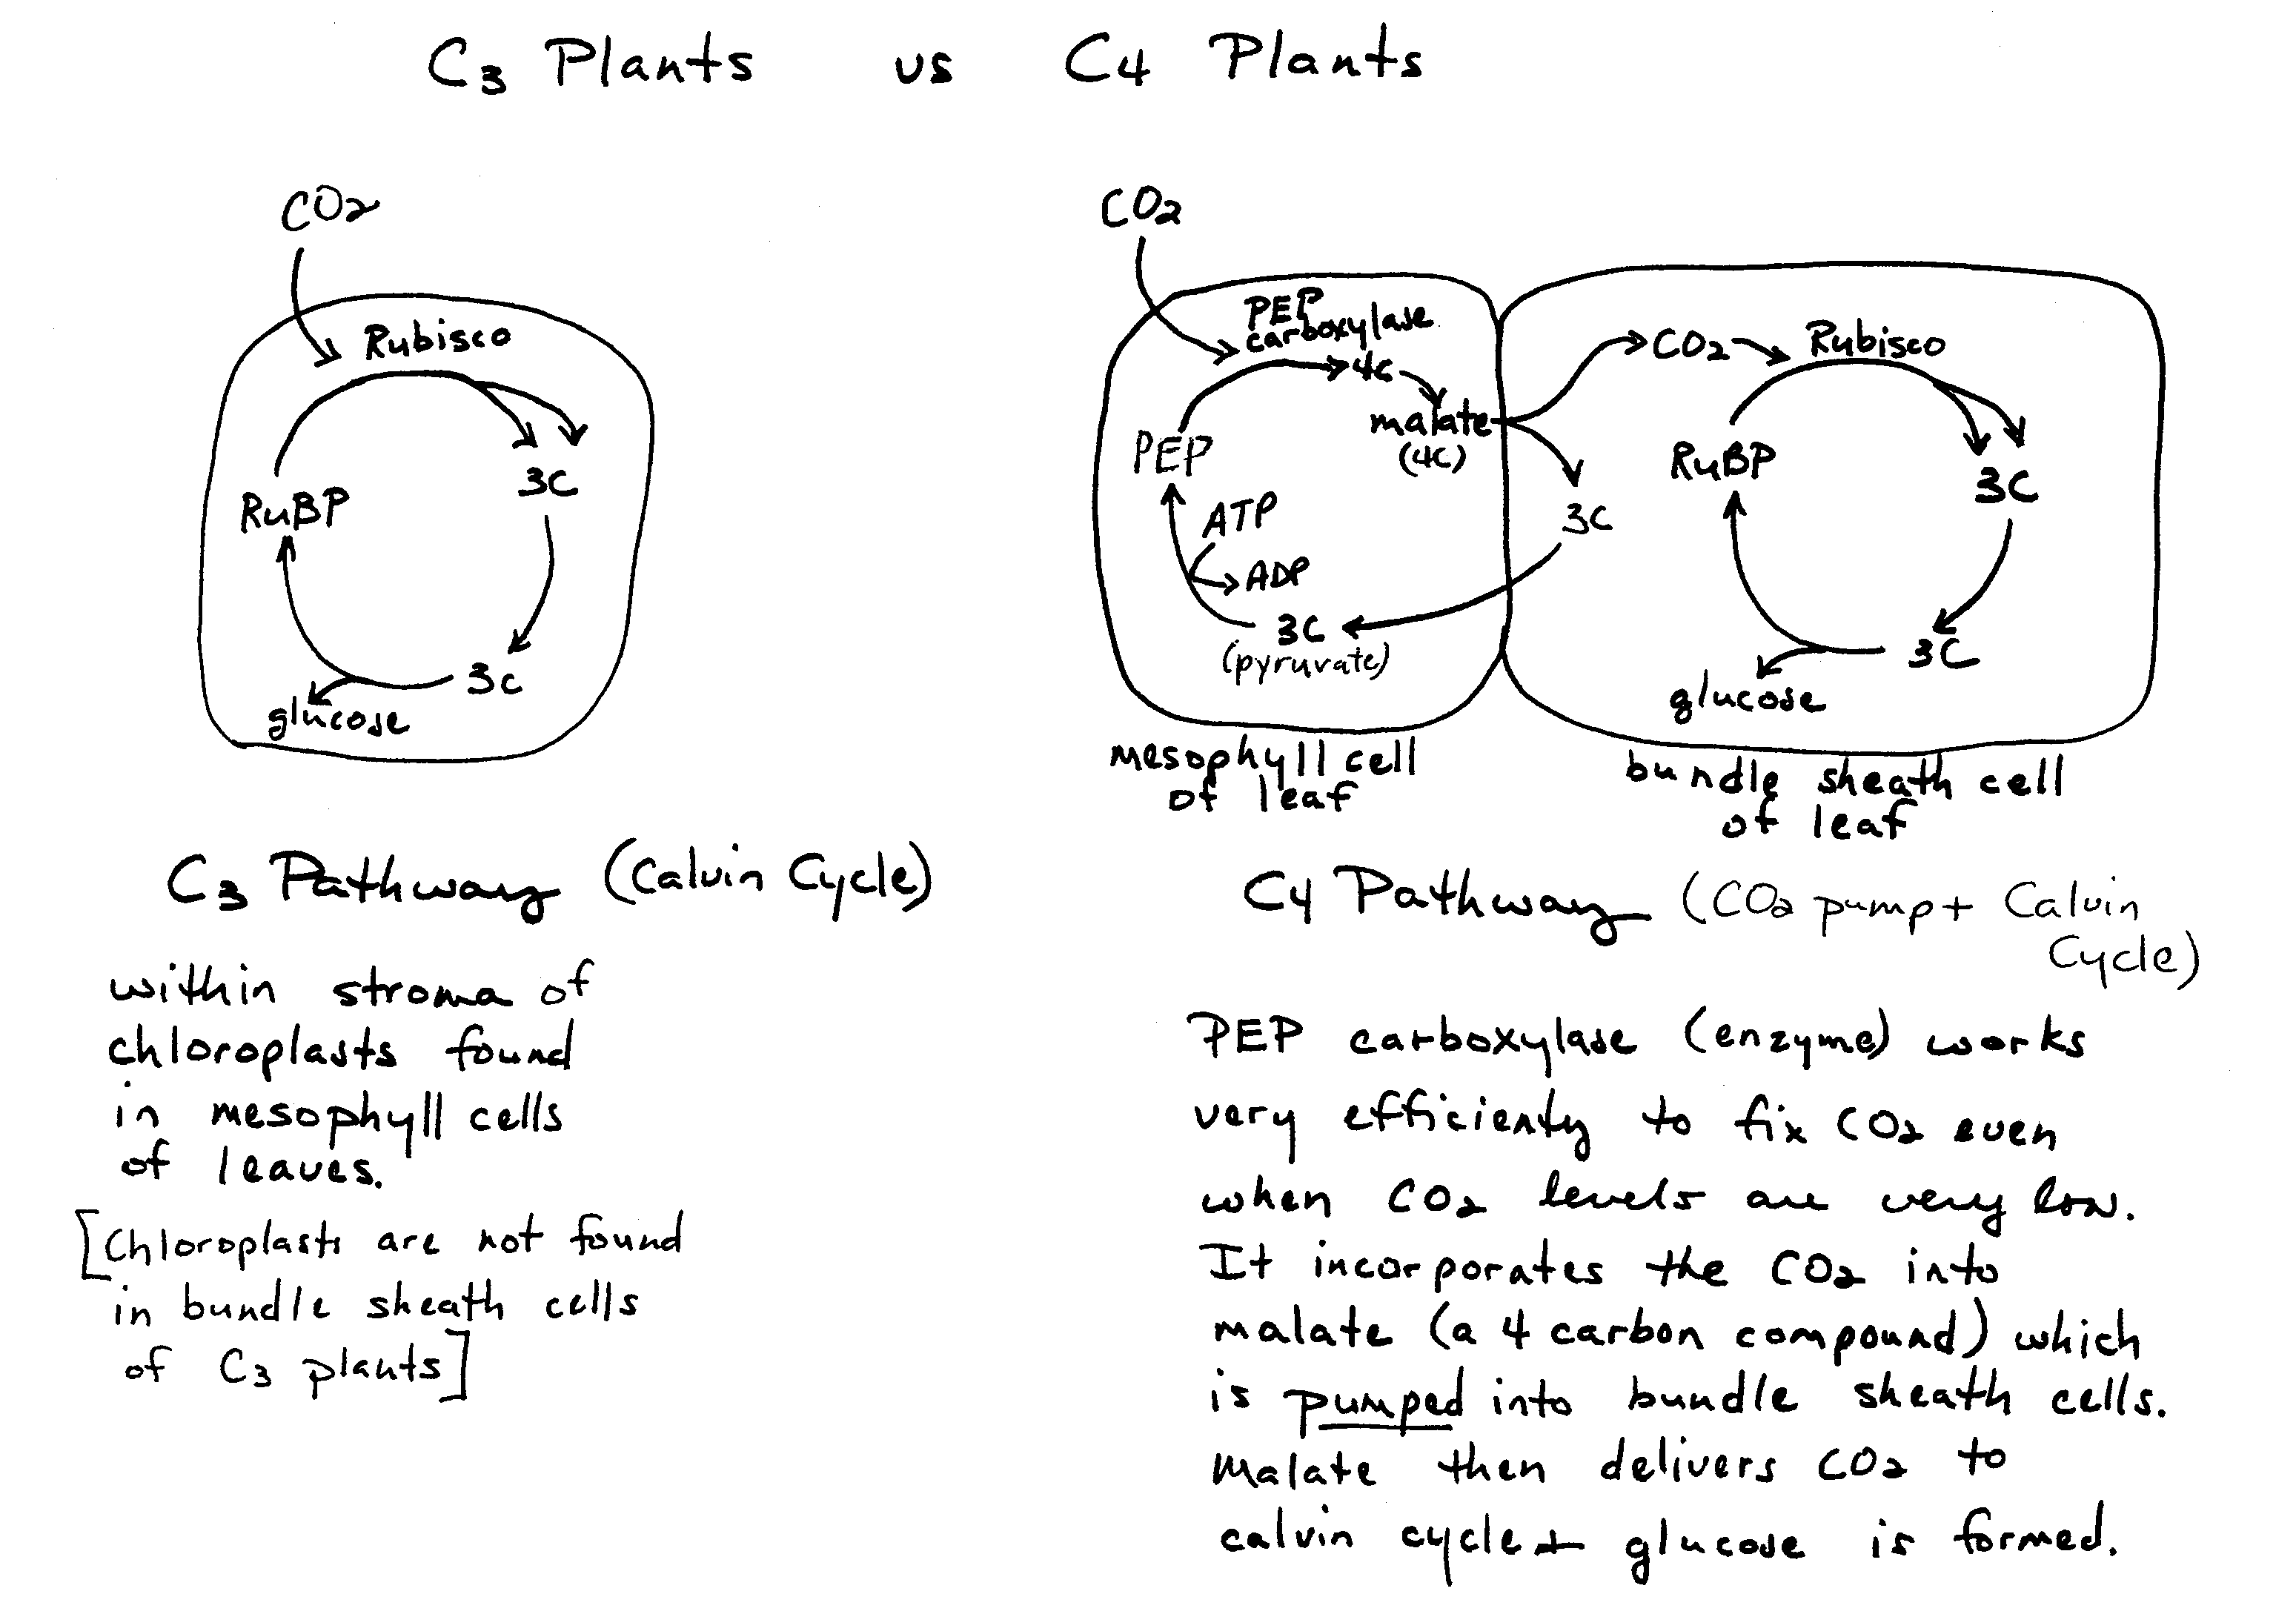 C3 Plants vs C4 Plants
CO2
Rubisco
RuBP
3C
3C
glucose
CO2
PEP
carboxylase
4C
malate
(4C)
PEP
ATP
ADP
3C
(pyruvate)
CO2
Rubisco
3C
RuBP
3C
3C
glucose
mesophyll cell
of leaf
bundle sheath cell
of leaf
C3 Pathway (Calvin Cycle)
within stroma of
chloroplasts found
in mesophyll cells
of leaves.
[Chloroplasts are not found
in bundle sheath cells
of C3 plants]
C4 Pathway (CO2 pump + Calvin
Cycle)
PEP carboxylase (enzyme) works
very efficiently to fix CO2 even
when CO2 levels are very low.
It incorporates the CO2 into
malate (a 4 carbon compound) which
is pumped into bundle sheath cells.
Malate then delivers CO2 to
calvin cycle + glucose is formed.